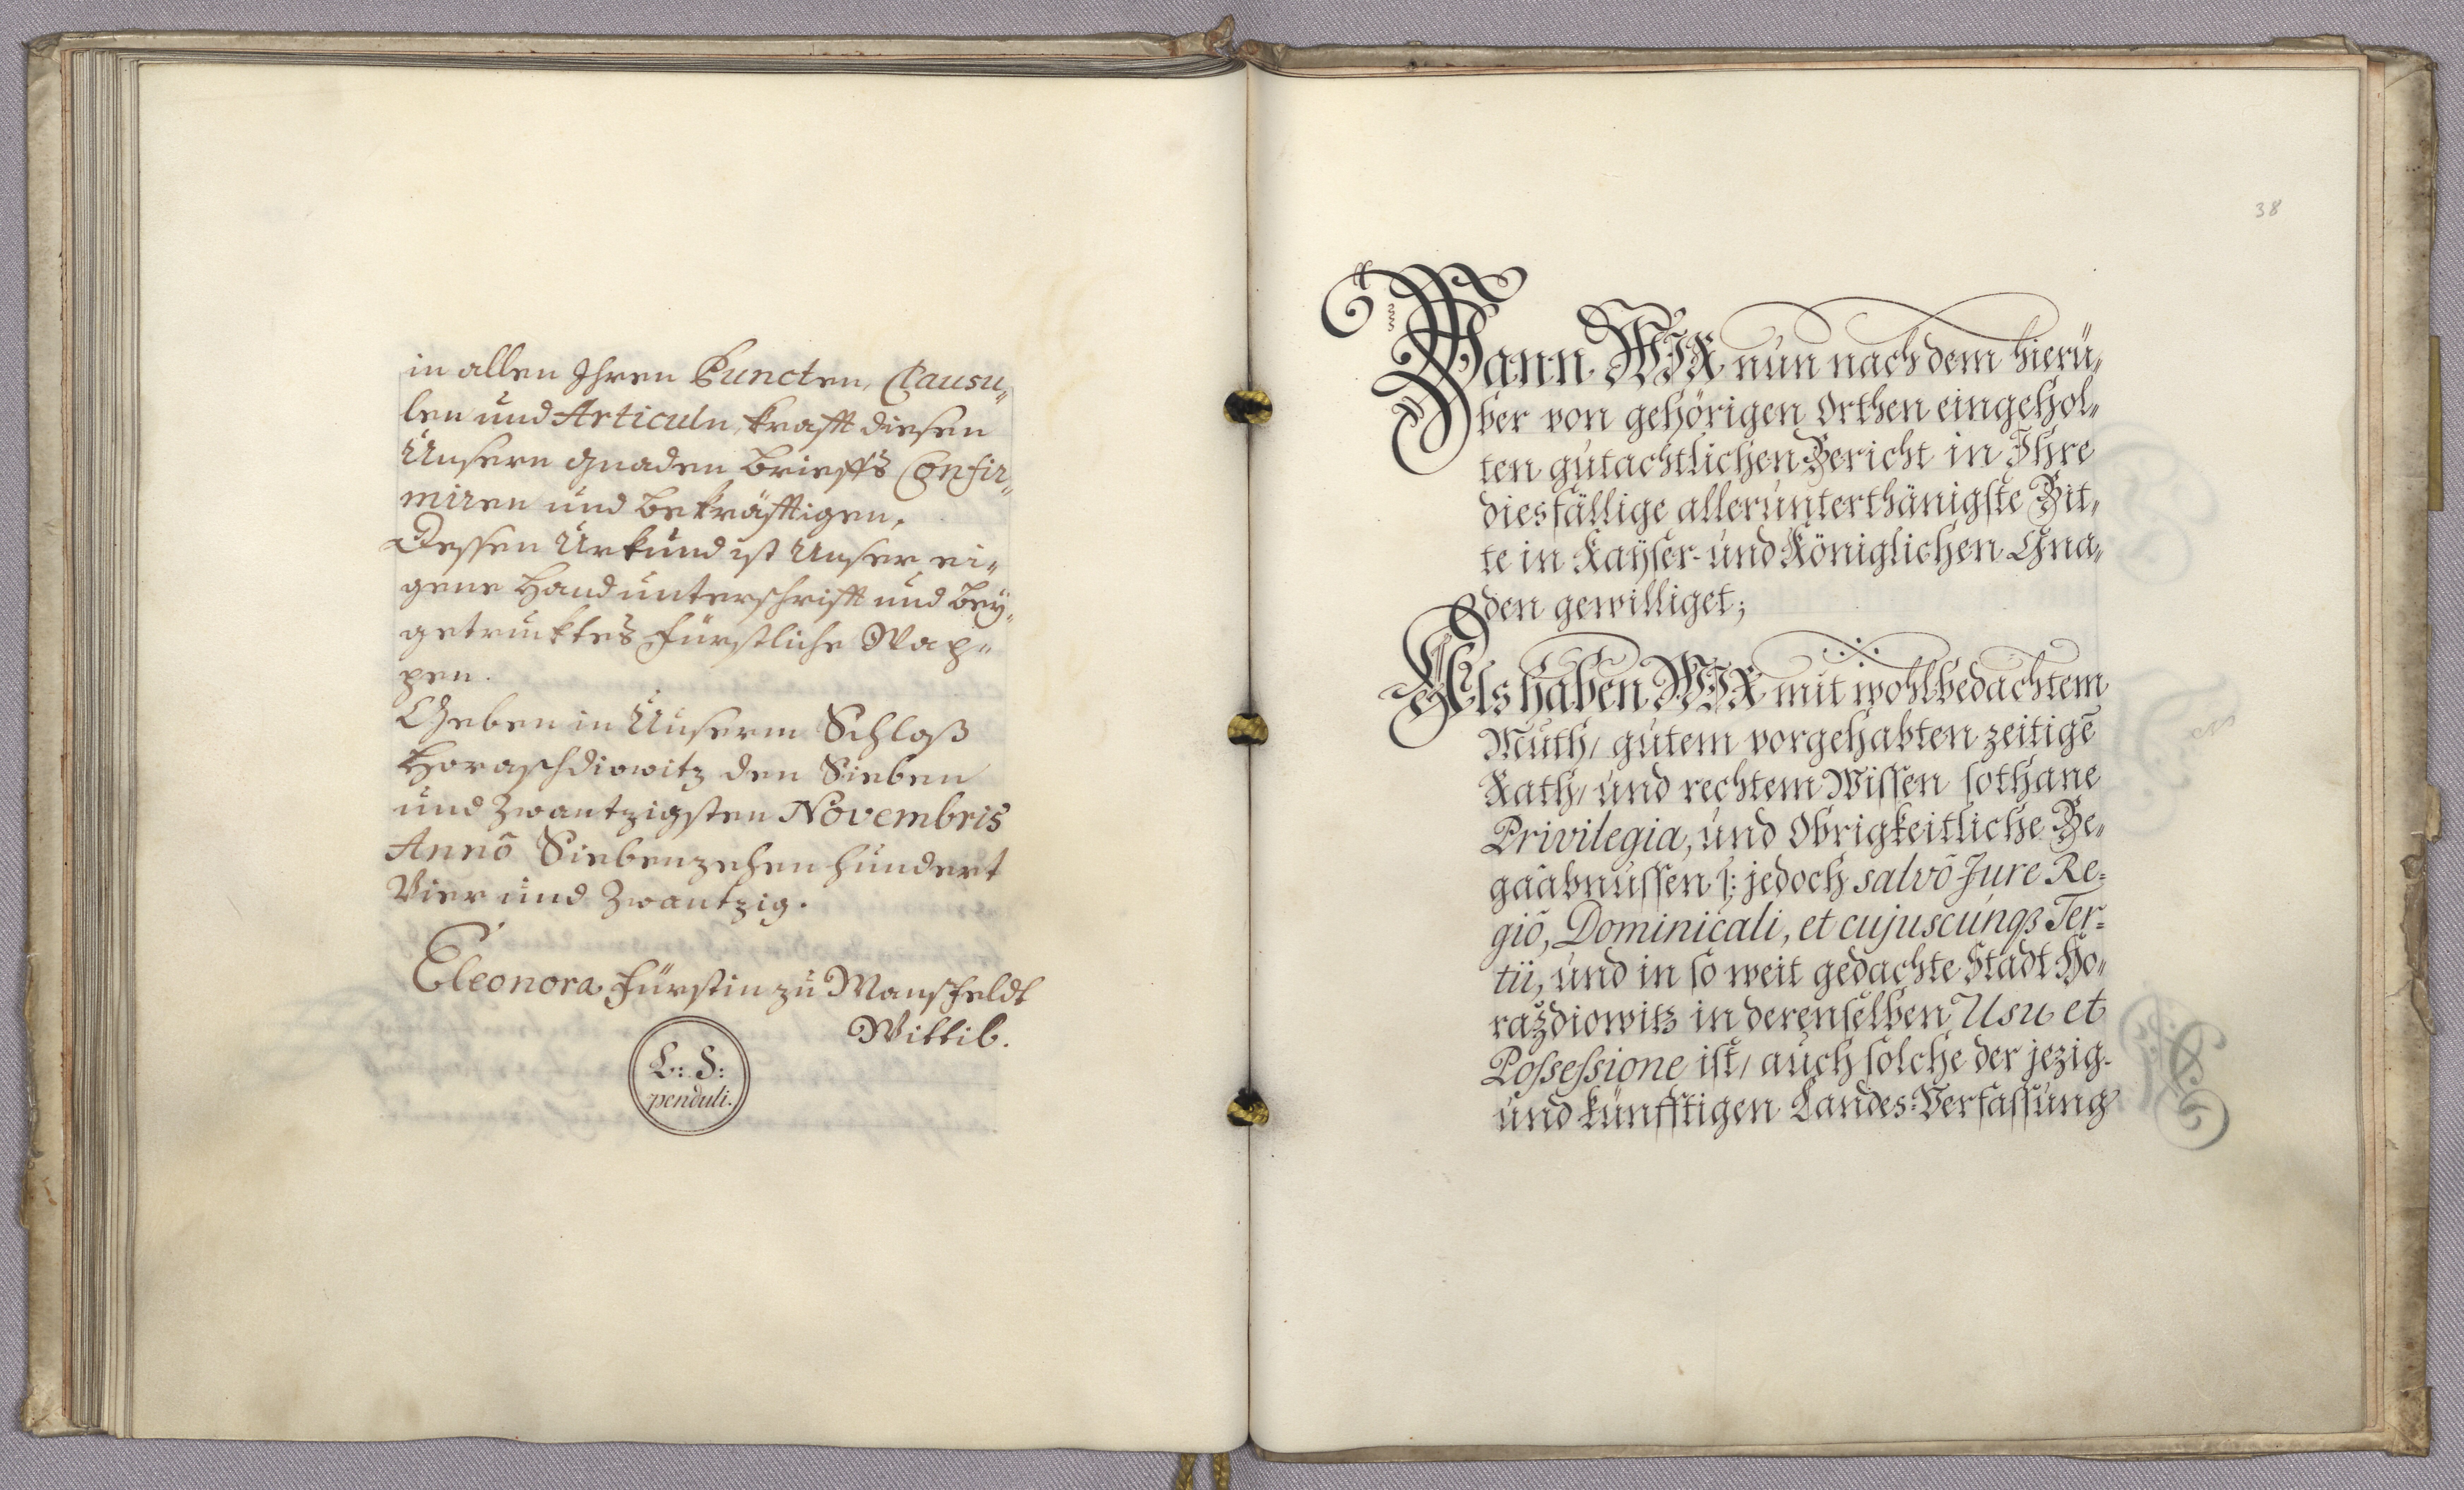 in allen Ihren Puncten, Clausu„
len und Articuln, krafft diesen
Unsern Gnaden Brieffs Confir„
miren und bekräfftigen.
Dessen Urkund ist Unser ei„
gene Handunterschrifft und bey„
getrucktes Fürstliche Wap„
pen.
Geben in Unserm Schloß
Horaschdiowitz den Sieben
und Zwantzigsten Novembris
Annō Siebenzehen hundert
Vier und Zwantzig.
Eleonora Fürstin zu Mansfeldt
Wittib.
L: S:
penduli.
38
Wann WIR nun nach dem hierü„
ber von gehörigen Orthen eingehol„
ten gutachtlichen Bericht in Ihre
diesfällige allerunterthänigste Bit„
te in Kayser- und Königlichen Gna„
den gewilliget;
Als haben WIR mit wohlbedachtem
Muth, gutem vorgehabten zeitigē
Rath, und rechtem Wissen sothane
Privilegia, und Obrigkeitliche Be„
gaabnussen /: jedoch salvō Jure Re=
giō, Dominicali, et cujuscunqз Ter=
tii, und in so weit gedachte Stadt Ho„
raždiowitz in derenselben Usu et
Possessione ist, auch solche der jezig-
und künfftigen Landes-Verfassung